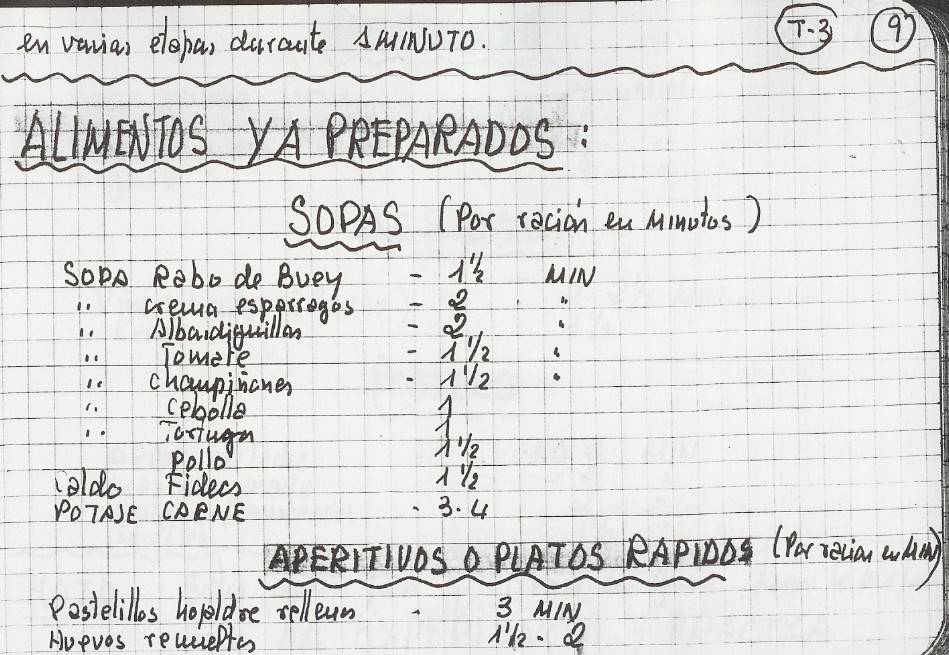 en varias etapas durante 1 MINUTO. T-3 9
ALIMENTOS YA PREPARADOS:
SOPAS (Por ración en Minutos)
SOPA Rabo de Buey - 1 1/2 MIN
" crema esparragos - 2 "
" Albardiguillas - 2 "
" Tomate - 1 1/2 "
" champiñones - 1 1/2 "
" Cebolla 1
" Tortuga 1
Pollo 1 1/2
Caldo Fideos 1 1/2
POTAJE CARNE - 3-4
APERITIVOS O PLATOS RAPIDOS (Por racion en MIN)
Pastelillos hojaldre rellenos - 3 MIN
Huevos revueltos 1 1/2 - 2